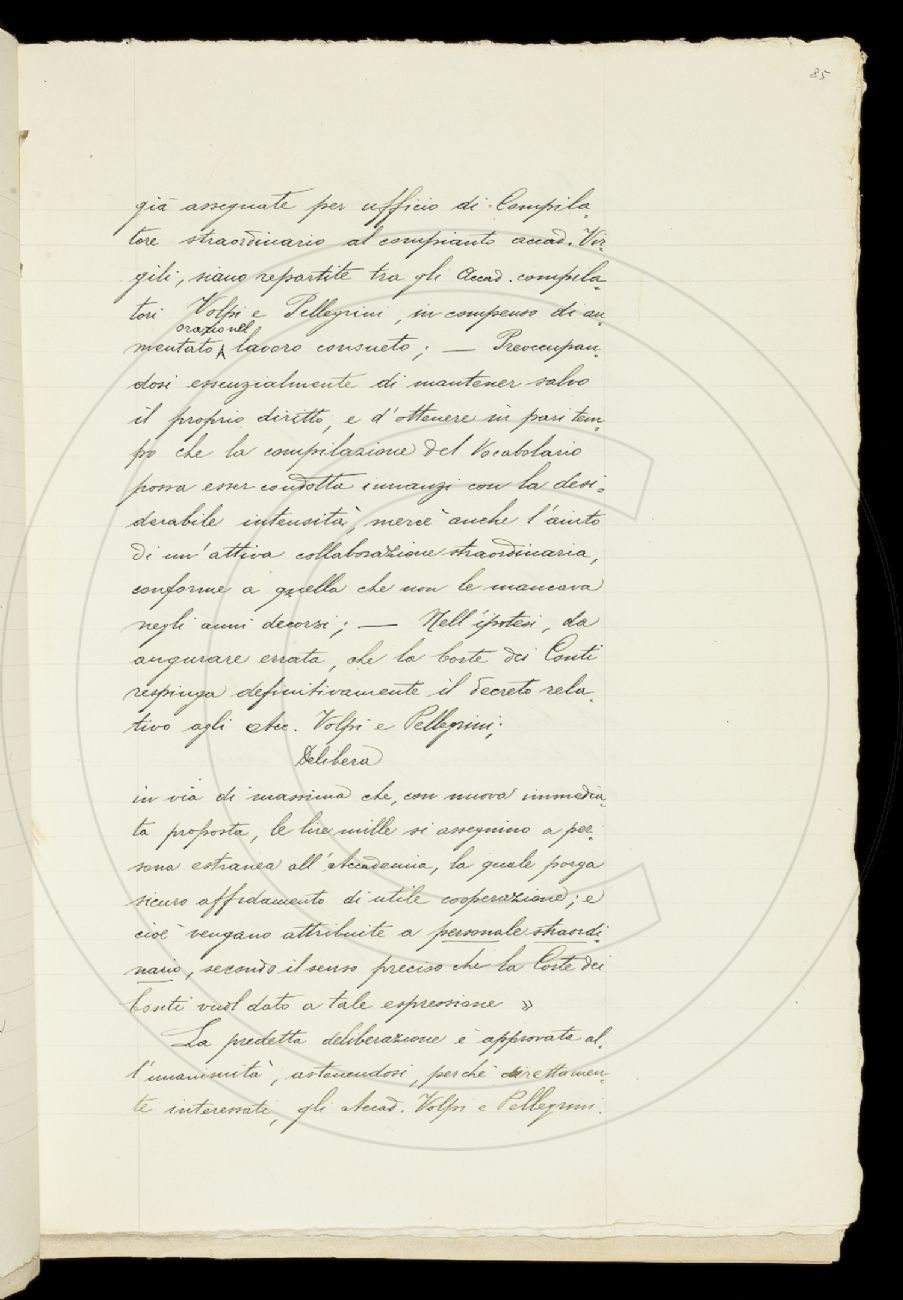 85
già assegnate per ufficio di Compila-
tore straordinario al compianto accad. Vir-
gili, siano repartite tra gli Accad. compila-
tori Volpi e Pellegrini, in compenso di au-
orazione
mentato lavoro consueto; — Preoccupan-
dosi essenzialmente di mantener salvo
il proprio diritto, e d'ottenere in pari tem-
po che la compilazione del Vocabolario
possa esser condotta innanzi con la desi-
derabile intensità, mercè anche l'aiuto
di un'attiva collaborazione straordinaria,
conforme a quella che non le mancava
negli anni decorsi; — Nell'ipotesi, da
augurare errata, che la Corte dei Conti
respinga definitivamente il decreto rela-
tivo agli Acc. Volpi e Pellegrini;
Delibera
in via di massima che, con nuova immedia-
ta proposta, le lire mille si assegnino a per-
sona estranea all'Accademia, la quale porga
sicuro affidamento di utile cooperazione; e
cioè vengano attribuite a personale straordi-
nario, secondo il senso preciso che la Corte dei
Conti vuol dato a tale espressione »
La predetta deliberazione è approvata al-
l'unanimità, astenendosi, perchè direttamen-
te interessati, gli Accad. Volpi e Pellegrini.